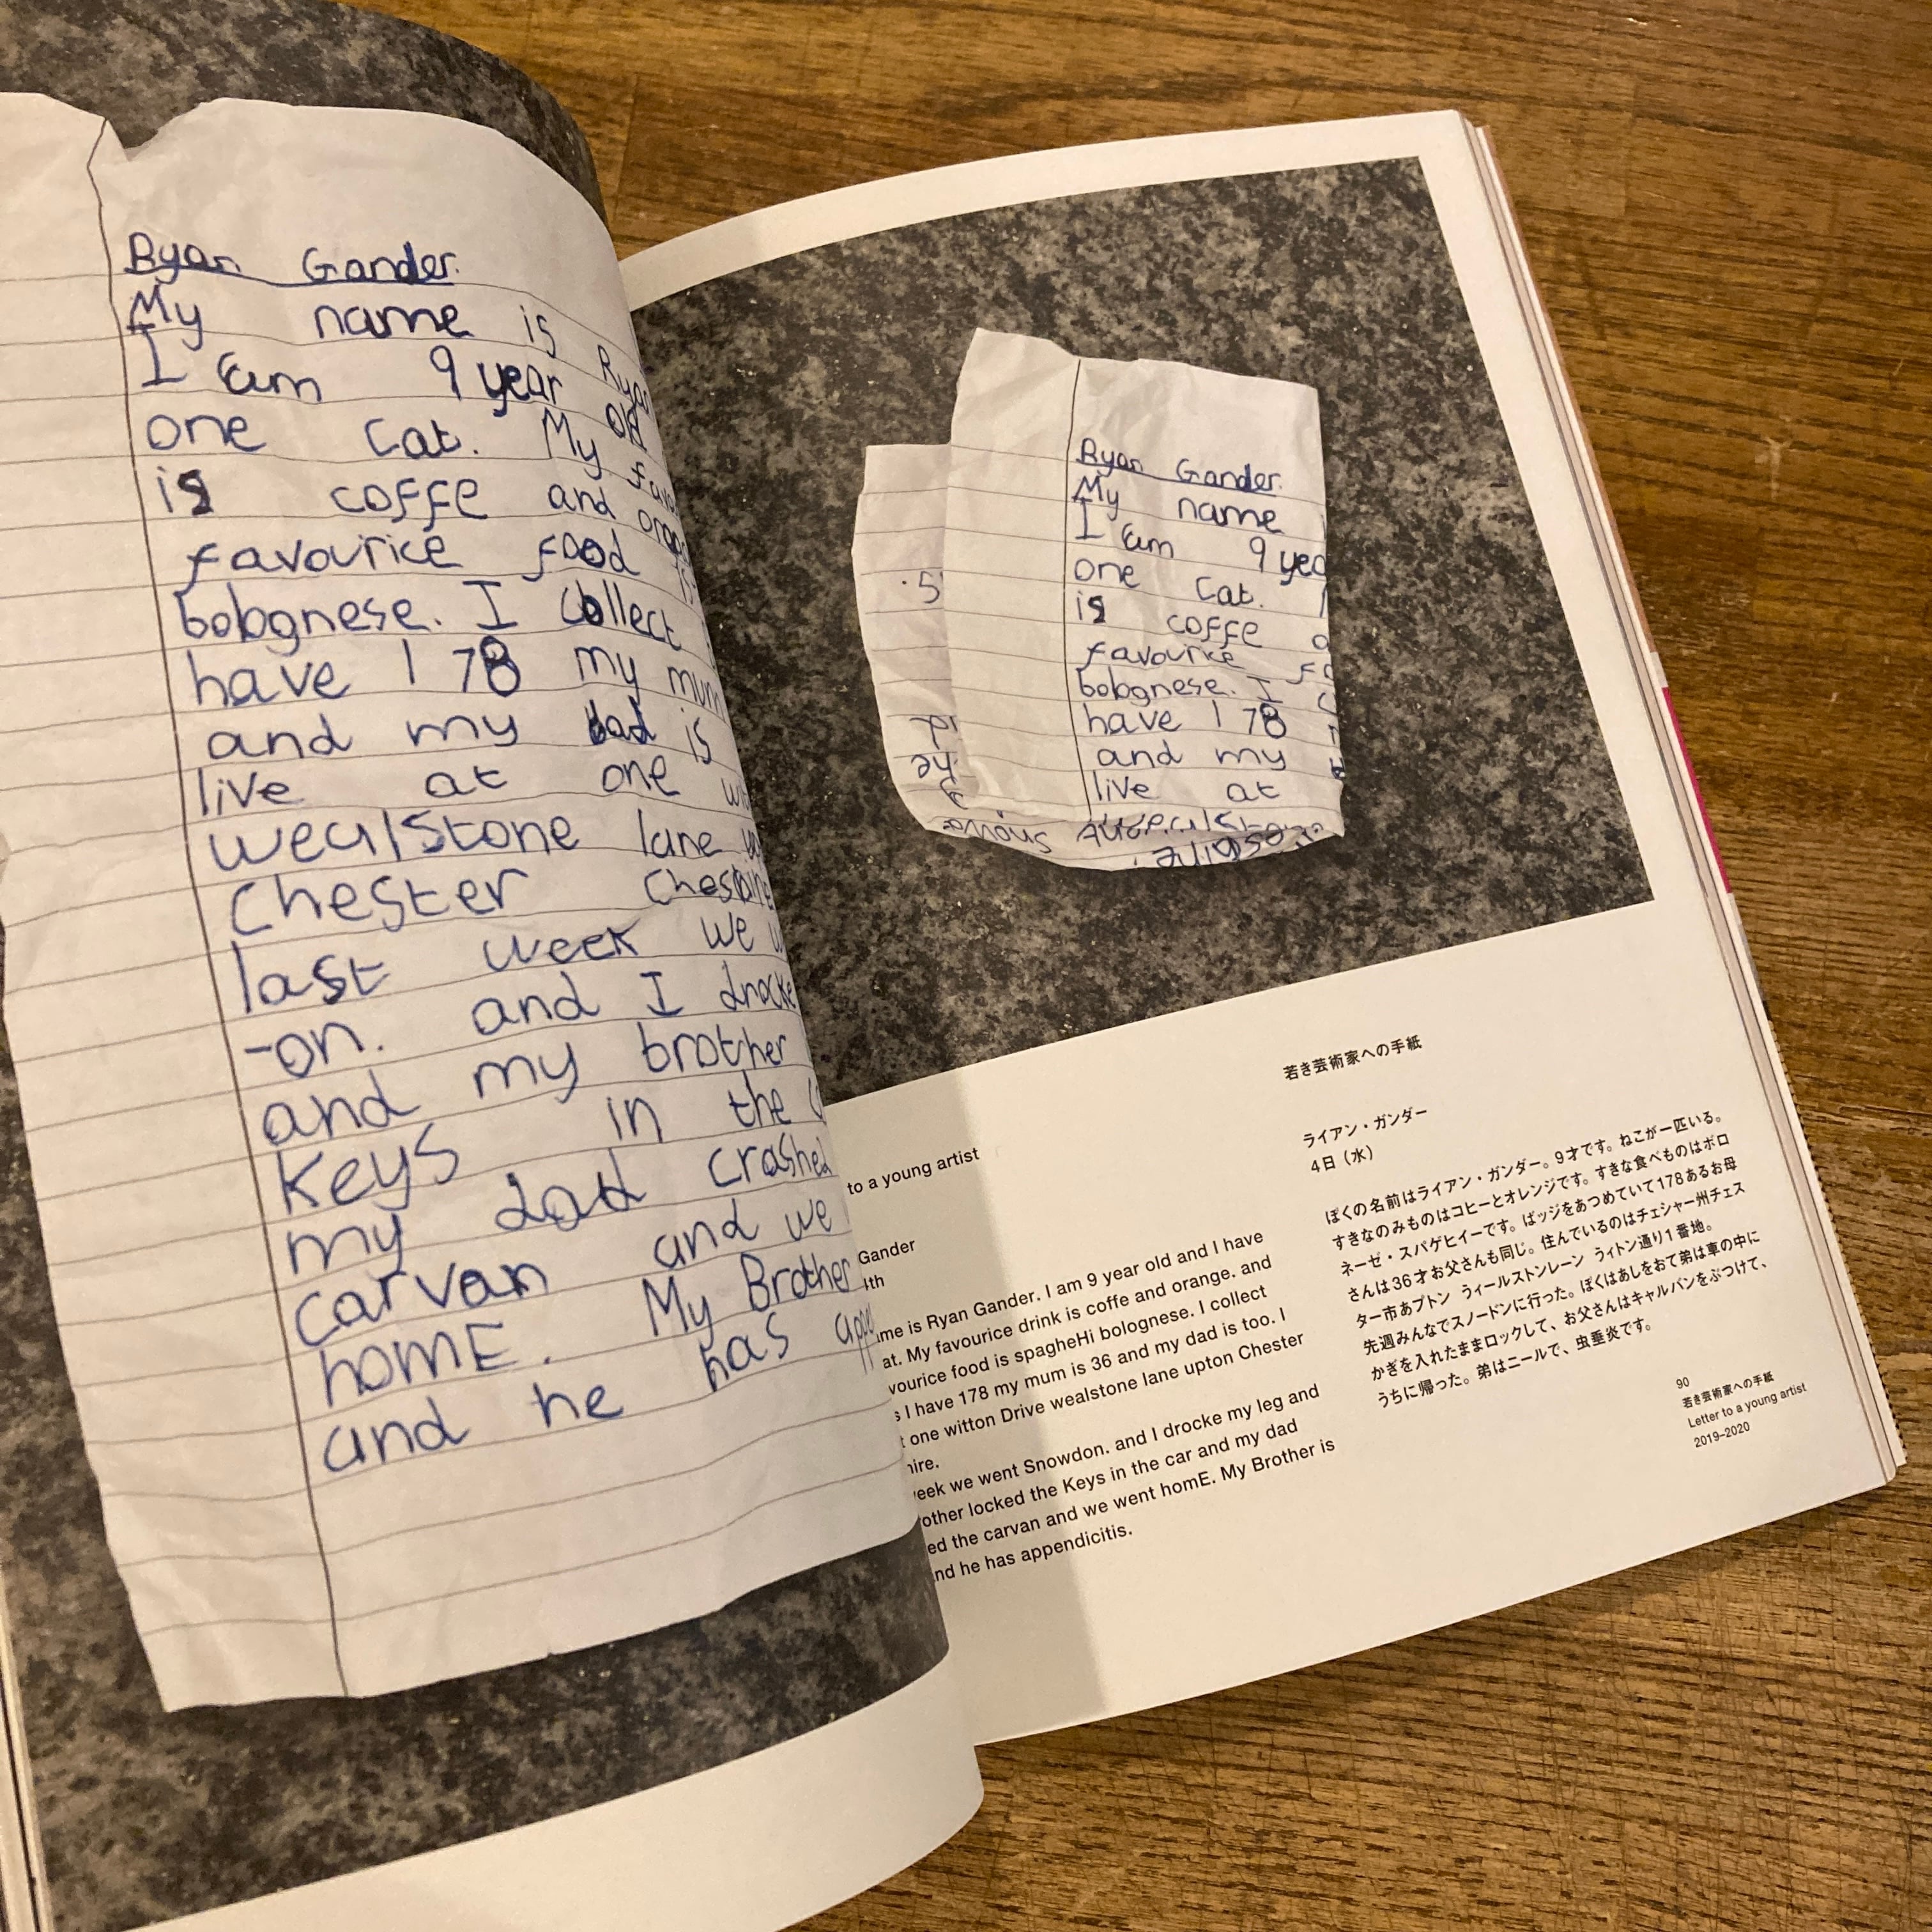 Ryan Gander.
My name is Ryan
I am 9 year old
one Cat. My
is coffe and
favourice food is
bolognese. I collect
have 178 my mum
and my dad is
live at one
wealstone lane
Chester
last week we
-on. and I drocke
and my brother
Keys in the
my dad crashed
carvan and we
homE. My Brother
and he has
Ryan Gander.
My name
I am 9
one Cat.
is coffe
favourice
bolognese. I
have 178
and my
live at
to a young artist
Gander
is Ryan Gander. I am 9 year old and I have
at. My favourice drink is coffe and orange. and
food is spagheHi bolognese. I collect
I have 178 my mum is 36 and my dad is too. I
one witton Drive wealstone lane upton Chester
we went Snowdon. and I drocke my leg and
locked the Keys in the car and my dad
the carvan and we went homE. My Brother is
he has appendicitis.
若き芸術家への手紙
ライアン・ガンダー
4日（水）
ぼくの名前はライアン・ガンダー。9才です。ねこが一匹いる。
すきなのみものはコヒーとオレンジです。すきな食べものはボロ
ネーゼ・スパゲヒイーです。ばッジをあつめていて178あるお母
さんは36才お父さんも同じ。住んでいるのはチェシャー州チェス
ター市あプトン うィールストンレーン うィトン通り1番地。
先週みんなでスノードンに行った。ぼくはあしをおて弟は車の中に
かぎを入れたままロックして、お父さんはキャルバンをぶつけて、
うちに帰った。弟はニールで、虫垂炎です。
90
若き芸術家への手紙
Letter to a young artist
2019–2020